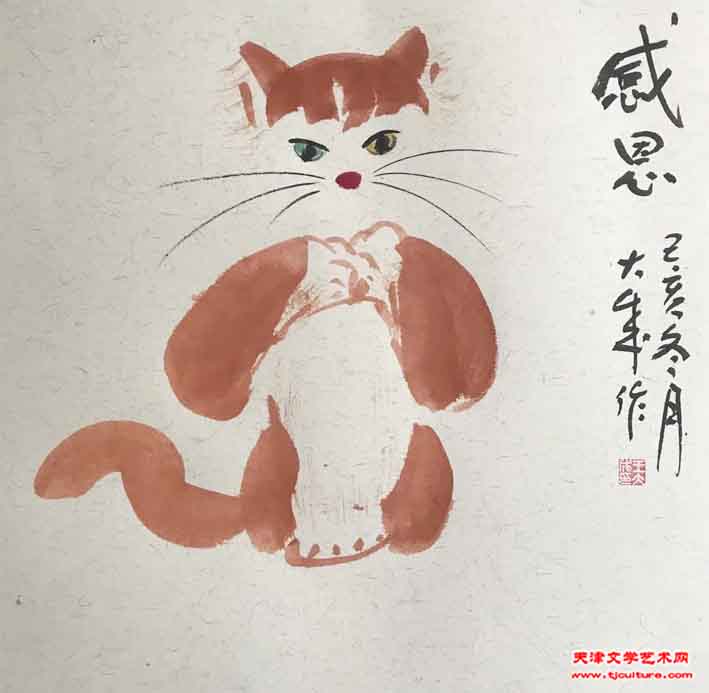 感恩
己亥冬月
大成作
天津文学艺术网
www.tjculture.com